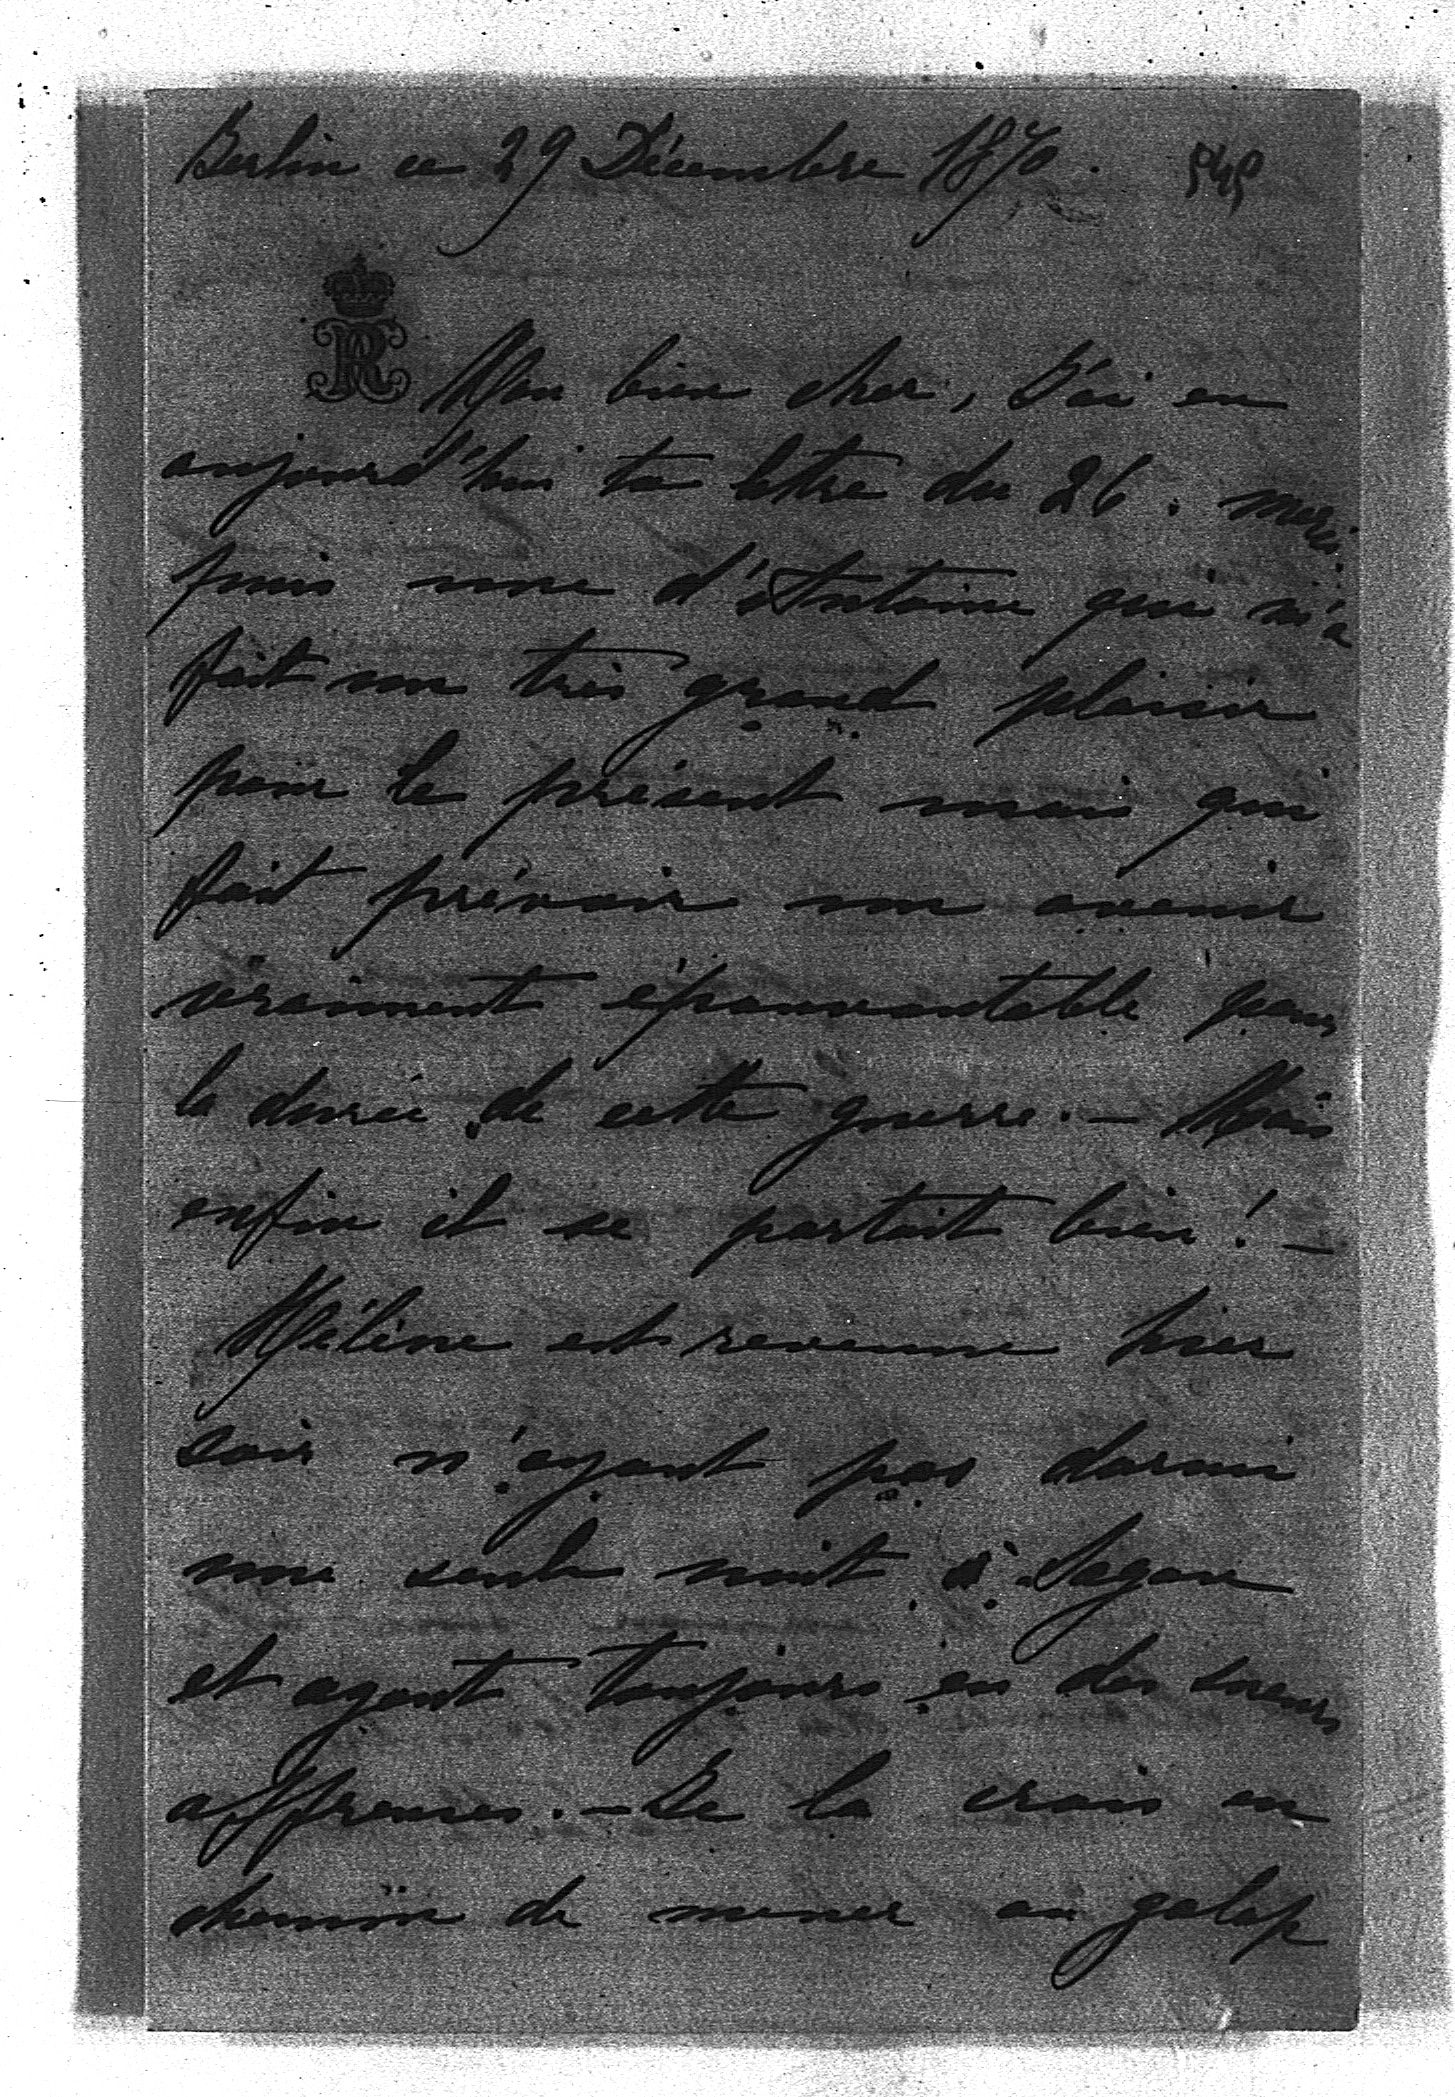 Berlin ce 29 Décembre 1870. 545
Mon bien cher, J'ai eu
aujourd'hui ta lettre du 26. merci
puis une d'Antoine qui m'a
fait un très grand plaisir
pour le présent mais qui
fait prévoir un avenir
vraiment épouvantable pour
la durée de cette guerre. – Mais
enfin il se portait bien! –
Hélène est revenue hier
soir n'ayant pas dormi
une seule nuit à Sagan
et ayant toujours eu des sueurs
affreuses. – Je la crois en
chemin de mener au galop